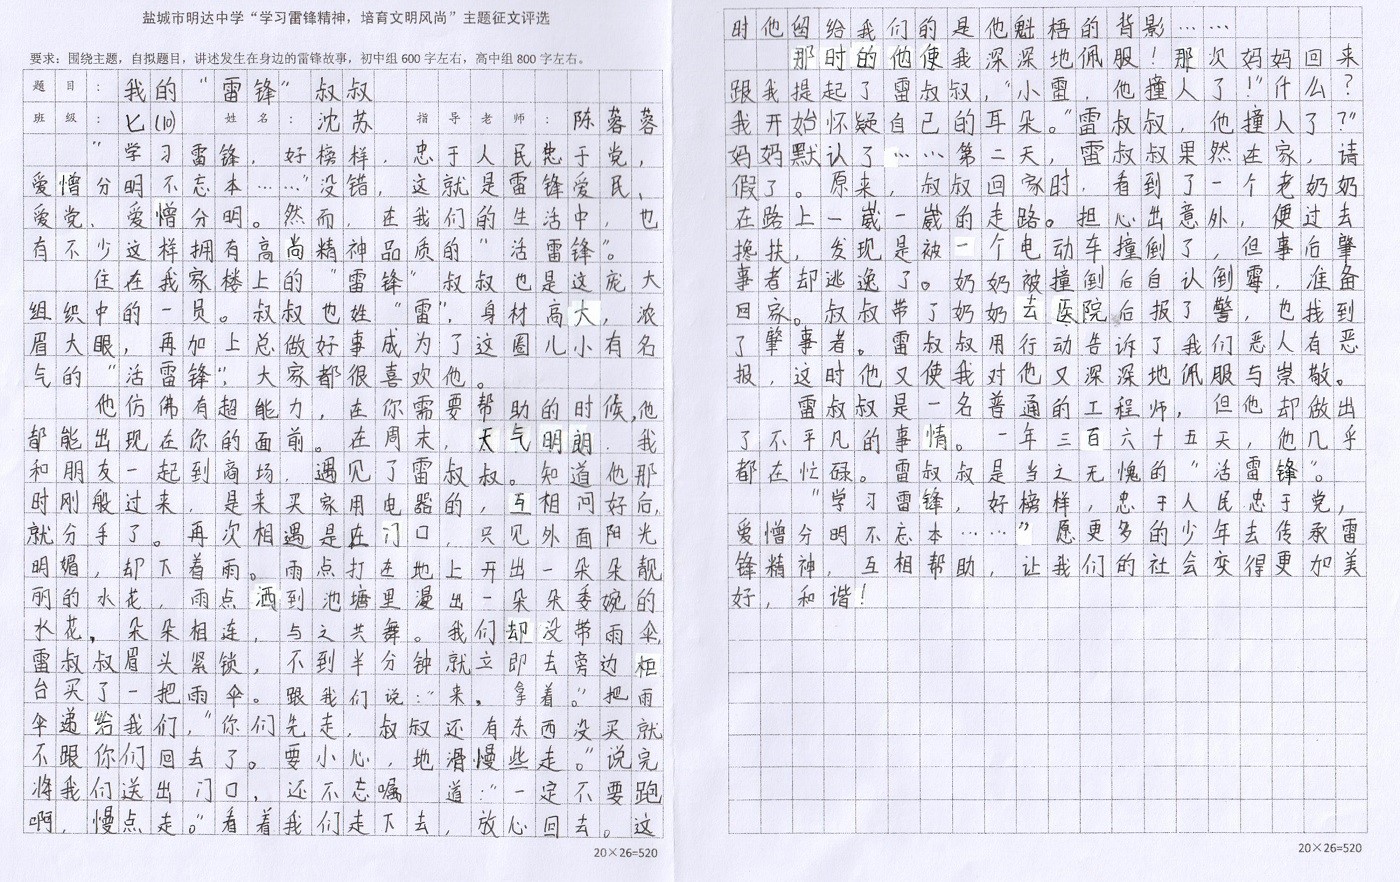 盐城市明达中学“学习雷锋精神，培育文明风尚”主题征文评选
要求：围绕主题，自拟题目，讲述发生在身边的雷锋故事，初中组 600 字左右，高中组 800 字左右。
题目：我的“雷锋”叔叔
班级：七(10) 姓名：沈苏 指导老师：陈蓉蓉
“学习雷锋，好榜样，忠于人民忠于党，
爱憎分明不忘本……”没错，这就是雷锋爱民、
爱党、爱憎分明。然而，在我们的生活中，也
有不少这样拥有高尚精神品质的“活雷锋”。
住在我家楼上的“雷锋”叔叔也是这庞大
组织中的一员。叔叔也姓“雷”，身材高大，浓
眉大眼，再加上总做好事成为了这圈儿小有名
气的“活雷锋”，大家都很喜欢他。
他仿佛有超能力，在你需要帮助的时候，他
都能出现在你的面前。在周末，天气明朗，我
和朋友一起到商场，遇见了雷叔叔。知道他那
时刚般过来，是来买家用电器的，互相问好后，
就分手了。再次相遇是在门口，只见外面阳光
明媚，却下着雨。雨点打在地上开出一朵朵靓
丽的水花，雨点洒到池塘里漫出一朵朵委婉的
水花，朵朵相连，与之共舞。我们却没带雨伞，
雷叔叔眉头紧锁，不到半分钟就立即去旁边柜
台买了一把雨伞。跟我们说：“来，拿着。”把雨
伞递给我们，“你们先走，叔叔还有东西没买就
不跟你们回去了。要小心，地滑慢些走。”说完
将我们送出门口，还不忘嘱道：“一定不要跑
啊，慢点走。”看着我们走下去，放心回去。这
时他留给我们的是他魁梧的背影……
那时的他使我深深地佩服！那次妈妈回来
跟我提起了雷叔叔，“小雷，他撞人了！”什么？
我开始怀疑自己的耳朵。“雷叔叔，他撞人了？”
妈妈默认了……第二天，雷叔叔果然在家，请
假了。原来，叔叔回家时，看到了一个老奶奶
在路上一崴一崴的走路。担心出意外，便过去
搀扶，发现是被一个电动车撞倒了，但事后肇
事者却逃逸了。奶奶被撞倒后自认倒霉，准备
回家。叔叔带了奶奶去医院后报了警，也找到
了肇事者。雷叔叔用行动告诉了我们恶人有恶
报，这时他又使我对他又深深地佩服与崇敬。
雷叔叔是一名普通的工程师，但他却做出
了不平凡的事情。一年三百六十五天，他几乎
都在忙碌。雷叔叔是当之无愧的“活雷锋”。
“学习雷锋，好榜样，忠于人民忠于党，
爱憎分明不忘本……”愿更多的少年去传承雷
锋精神，互相帮助，让我们的社会变得更加美
好，和谐！
20×26=520
20×26=520